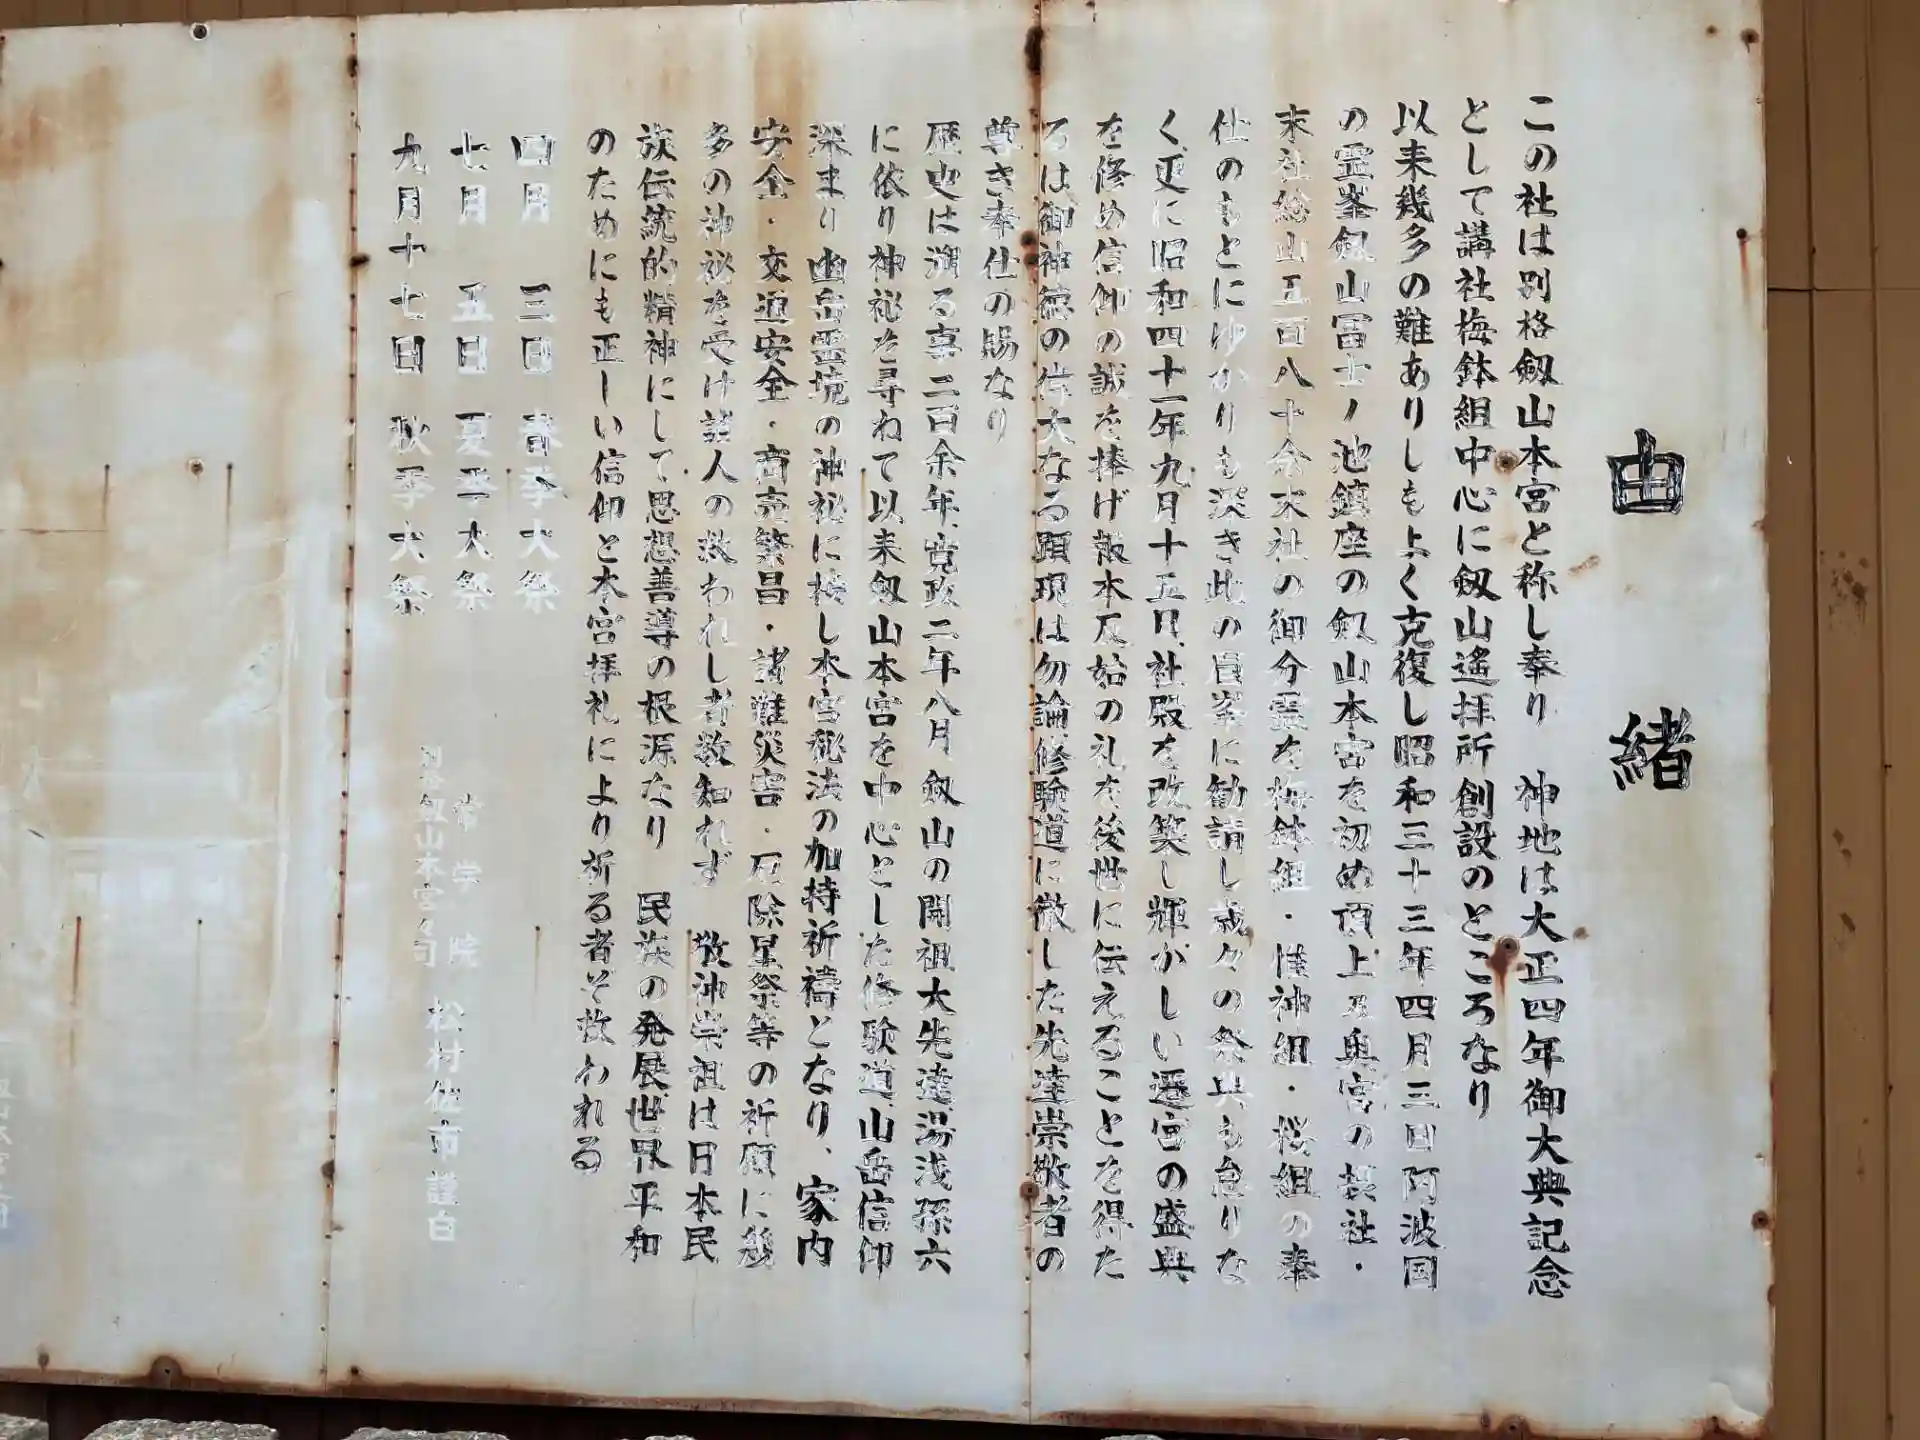 由緒
この社は別格剱山本宮と称し奉り 神地は大正四年御大典記念
として講社梅鉢組中心に剱山遙拝所創設のところなり
以来幾多の難ありしもよく克復し昭和三十三年四月三日阿波国
の霊峯剱山冨士ノ池鎮座の剱山本宮を初め頂上乃奥宮の摂社・
末社総山五百八十余末社の御分霊を梅鉢組・惟神組・桜組の奉
仕のもとにゆかりも深き此の眉峯に勧請し歳々の祭典も怠りな
く、更に昭和四十一年九月十五日、社殿を改築し輝かしい遷宮の盛典
を修め信仰の誠を捧げ報本反始の礼を後世に伝えることを得た
るは御神徳の偉大なる顕現は勿論、修験道に徹した先達崇敬者の
尊き奉仕の賜なり
歴史は溯る事二百余年、寛政二年八月剱山の開祖大先達湯浅孫六
に依り神秘を尋ねて以来剱山本宮を中心とした修験道、山岳信仰
深まり幽岳霊境の神秘に接し本宮秘法の加持祈祷となり、家内
安全・交通安全・商売繁昌・諸難災害・厄除星祭等の祈願に幾
多の神秘を受け諸人の救われし者数知れず 敬神崇祖は日本民
族伝統的精神にして思想善導の根源なり 民族の発展、世界平和
のためにも正しい信仰と本宮拝礼により祈る者ぞ救われる
四月 三日 春季大祭
七月 五日 夏季大祭
九月十七日 秋季大祭
常学院
別格剱山本宮々司 松村佐市謹白